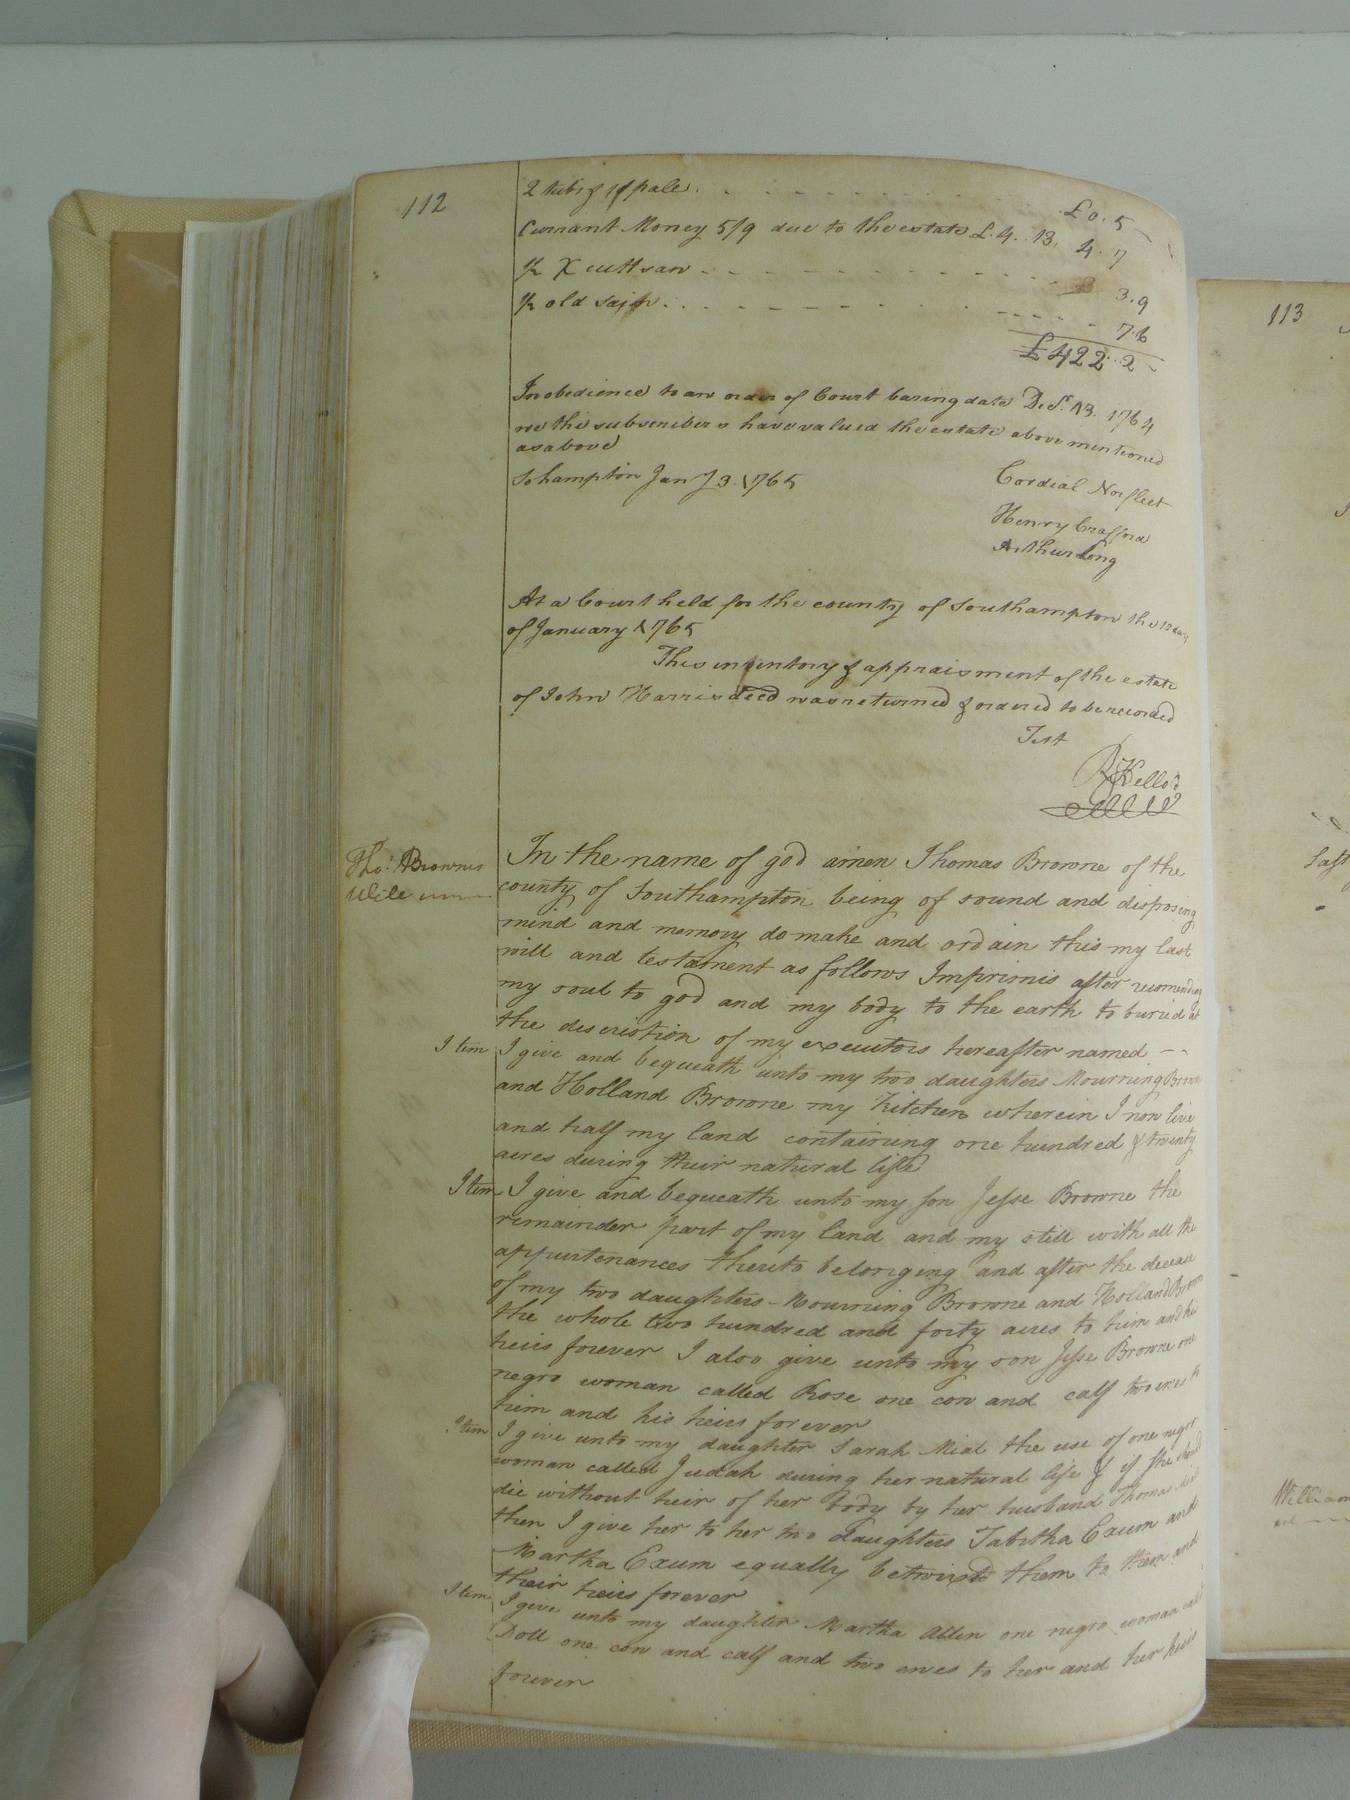 112
2 tubs & 1 pale . £0. 5 -
Currant Money 5/9 due to the estate £. 4. 13. 4. 7
1/2 X cutt saw 3. 9
1/2 old 7.6
£422. 2 -
In obedience to an order of Court baring date Decr. 13. 1764
we the subscribers have valued the estate above mentioned
as above
Sohampton Jany 3. 1765
Cordial Norfleet
Henry Crafford
Arthur Long
At a Court held for the county of Southampton the day
of January 1765
This inventory & appraisment of the estate
of John Harris decd was returned & ordered to be recorded
Test
R Kello
Tho: Brownes
Will
In the name of god amen Thomas Browne of the
county of Southampton being of sound and disposing
mind and memory do make and ordain this my last
will and testament as follows Imprimis after recomending
my soul to god and my body to the earth to buried at
the discristion of my executors hereafter named - -
Item I give and bequeath unto my two daughters Mourning Browne
and Holland Browne my kitchen wherein I now live
and half my land containing one hundred & twenty
acres during their natural life
Item I give and bequeath unto my son Jesse Browne the
remainder part of my land and my still with all the
appurtenances thereto belonging and after the decease
of my two daughters - Mourning Browne and Holland Browne
the whole two hundred and forty acres to him and his
heirs forever I also give unto my son Jesse Browne one
negro woman called Rose one cow and calf two ewes to
him and his heirs forever
Item I give unto my daughter Sarah Mial the use of one negro
woman called Judah during her natural life & if she should
die without heir of her body by her husband Thomas Mial
then I give her to her two daughters Tabitha Exum and
Martha Exum equally betwixt them to them and
their heirs forever
Item I give unto my daughter Martha Allen one negro woman call
Doll one cow and calf and two ewes to her and her heirs
forever
113
Last
William